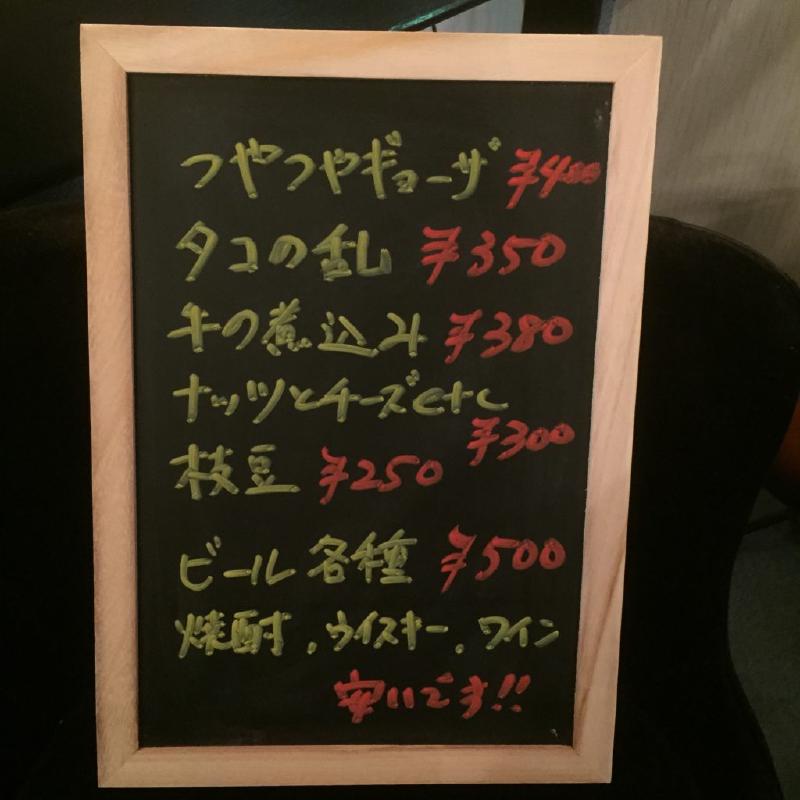 つやつやギョーザ ¥400
タコの乱 ¥350
牛の煮込み ¥380
ナッツとチーズetc
¥300
枝豆 ¥250
ビール各種 ¥500
焼酎.ウイスキー.ワイン
安いです!!